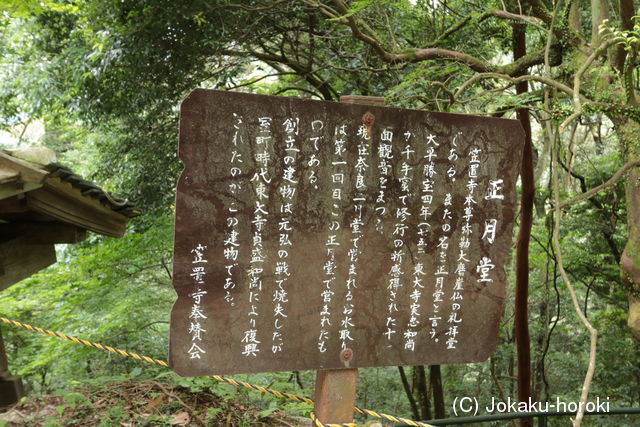 正月堂
笠置寺本尊弥勒大磨崖仏の礼拝堂
である。またの名を正月堂と言う。
天平勝宝四年（七五二）東大寺実忠和尚
が千手窟で修行の折感得された十一
面観音をまつる。
現在奈良二月堂で営まれるお水取り
は第一回目この正月堂で営まれたも
のである。
創立の建物は元弘の戦で焼失したが
室町時代東大寺貞盛和尚により復興
されたのがこの建物である。
笠置寺奉賛会
(C) Jokaku-horoki